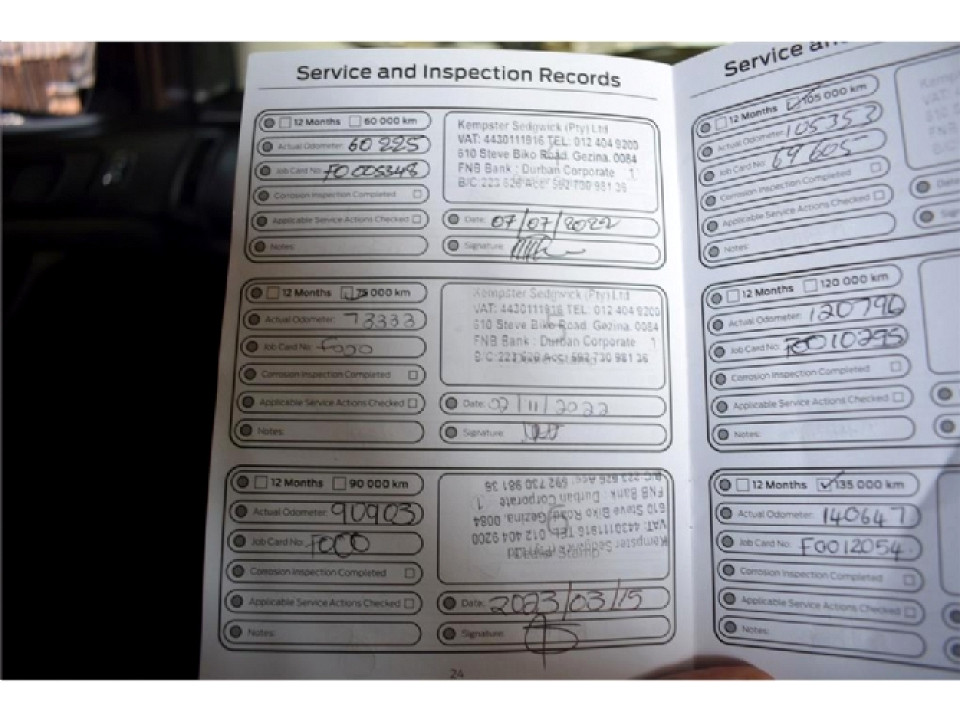 Service and Inspection Records
12 Months 60 000 km
Actual Odometer: 60 225
Job Card No: F0005348
Corrosion Inspection Completed
Applicable Service Actions Checked
Notes:
Kempster Sedgwick (Pty) Ltd
VAT: 4430111916 TEL: 012 404 9200
610 Steve Biko Road. Gezina. 0084
FNB Bank : Durban Corporate 1
B/C 223 626 Acc: 592 730 981 36
Date: 07/07/2022
Signature:
12 Months 75 000 km
Actual Odometer: 73333
Job Card No: F000
Corrosion Inspection Completed
Applicable Service Actions Checked
Notes:
Kempster Sedgwick (Pty) Ltd
VAT: 4430111916 TEL: 012 404 9200
610 Steve Biko Road. Gezina. 0084
FNB Bank : Durban Corporate 1
B/C 223 626 Acc: 592 730 981 36
Date: 02/11/2022
Signature:
12 Months 90 000 km
Actual Odometer: 90903
Job Card No: F000
Corrosion Inspection Completed
Applicable Service Actions Checked
Notes:
Kempster Sedgwick (Pty) Ltd
VAT: 4430111916 TEL: 012 404 9200
610 Steve Biko Road, Gezina. 0084
FNB Bank : Durban Corporate 1
B/C 223 626 Acc: 592 730 981 36
Date: 2023/03/15
Signature:
24
Service and
12 Months 105 000 km
Actual Odometer: 105353
Job Card No: 69605
Corrosion Inspection Completed
Applicable Service Actions Checked
Notes:
Kempst
VAT: 4
610 S
FNB
12 Months 120 000 km
Actual Odometer: 120796
Job Card No: F0010295
Corrosion Inspection Completed
Applicable Service Actions Checked
Notes:
12 Months 135 000 km
Actual Odometer: 140647
Job Card No: F0012054
Corrosion Inspection Completed
Applicable Service Actions Checked
Notes: